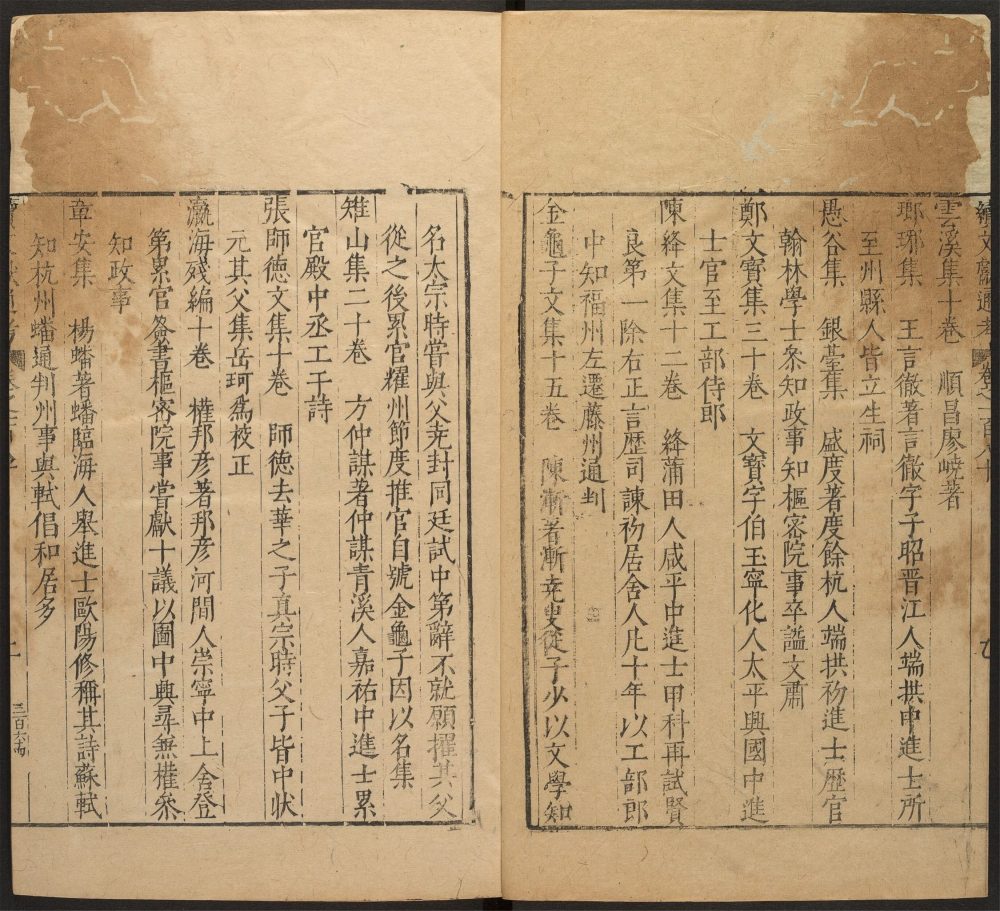 續文獻通考 卷之一百八十
雲溪集十卷 順昌廖嶢著
瑯琊集 王言徹著言徹字子昭晋江人端拱中進士所
至州縣人皆立生祠
愚谷集 銀臺集 盛度著度餘杭人端拱初進士歷官
翰林學士叅知政事知樞密院事卒謚文肅
鄭文寳集三十卷 文寳字伯玉寧化人太平興國中進
士官至工部侍郎
陳絳文集十二卷 絳蒲田人咸平中進士甲科再試賢
良第一除右正言歷司諫初居舍人凡十年以工部郎
中知福州左遷藤州通判
金龜子文集十五卷 陳漸著漸尭叟從子少以文學知
名太宗時嘗與父尭封同廷試中第辭不就願擢其父
從之後累官耀州節度推官自號金龜子因以名集
雉山集二十卷 方仲謀著仲謀青溪人嘉祐中進士累
官殿中丞工于詩
張師德文集十卷 師德去華之子真宗時父子皆中状
元其父集岳珂爲校正
瀛海殘編十卷 權邦彦著邦彦河間人崇寧中上舍登
第累官僉書樞密院事嘗獻十議以圖中興尋無權叅
知政事
章安集 楊蟠著蟠臨海人舉進士歐陽修稱其詩蘇軾
知杭州蟠通判州事與軾倡和居多